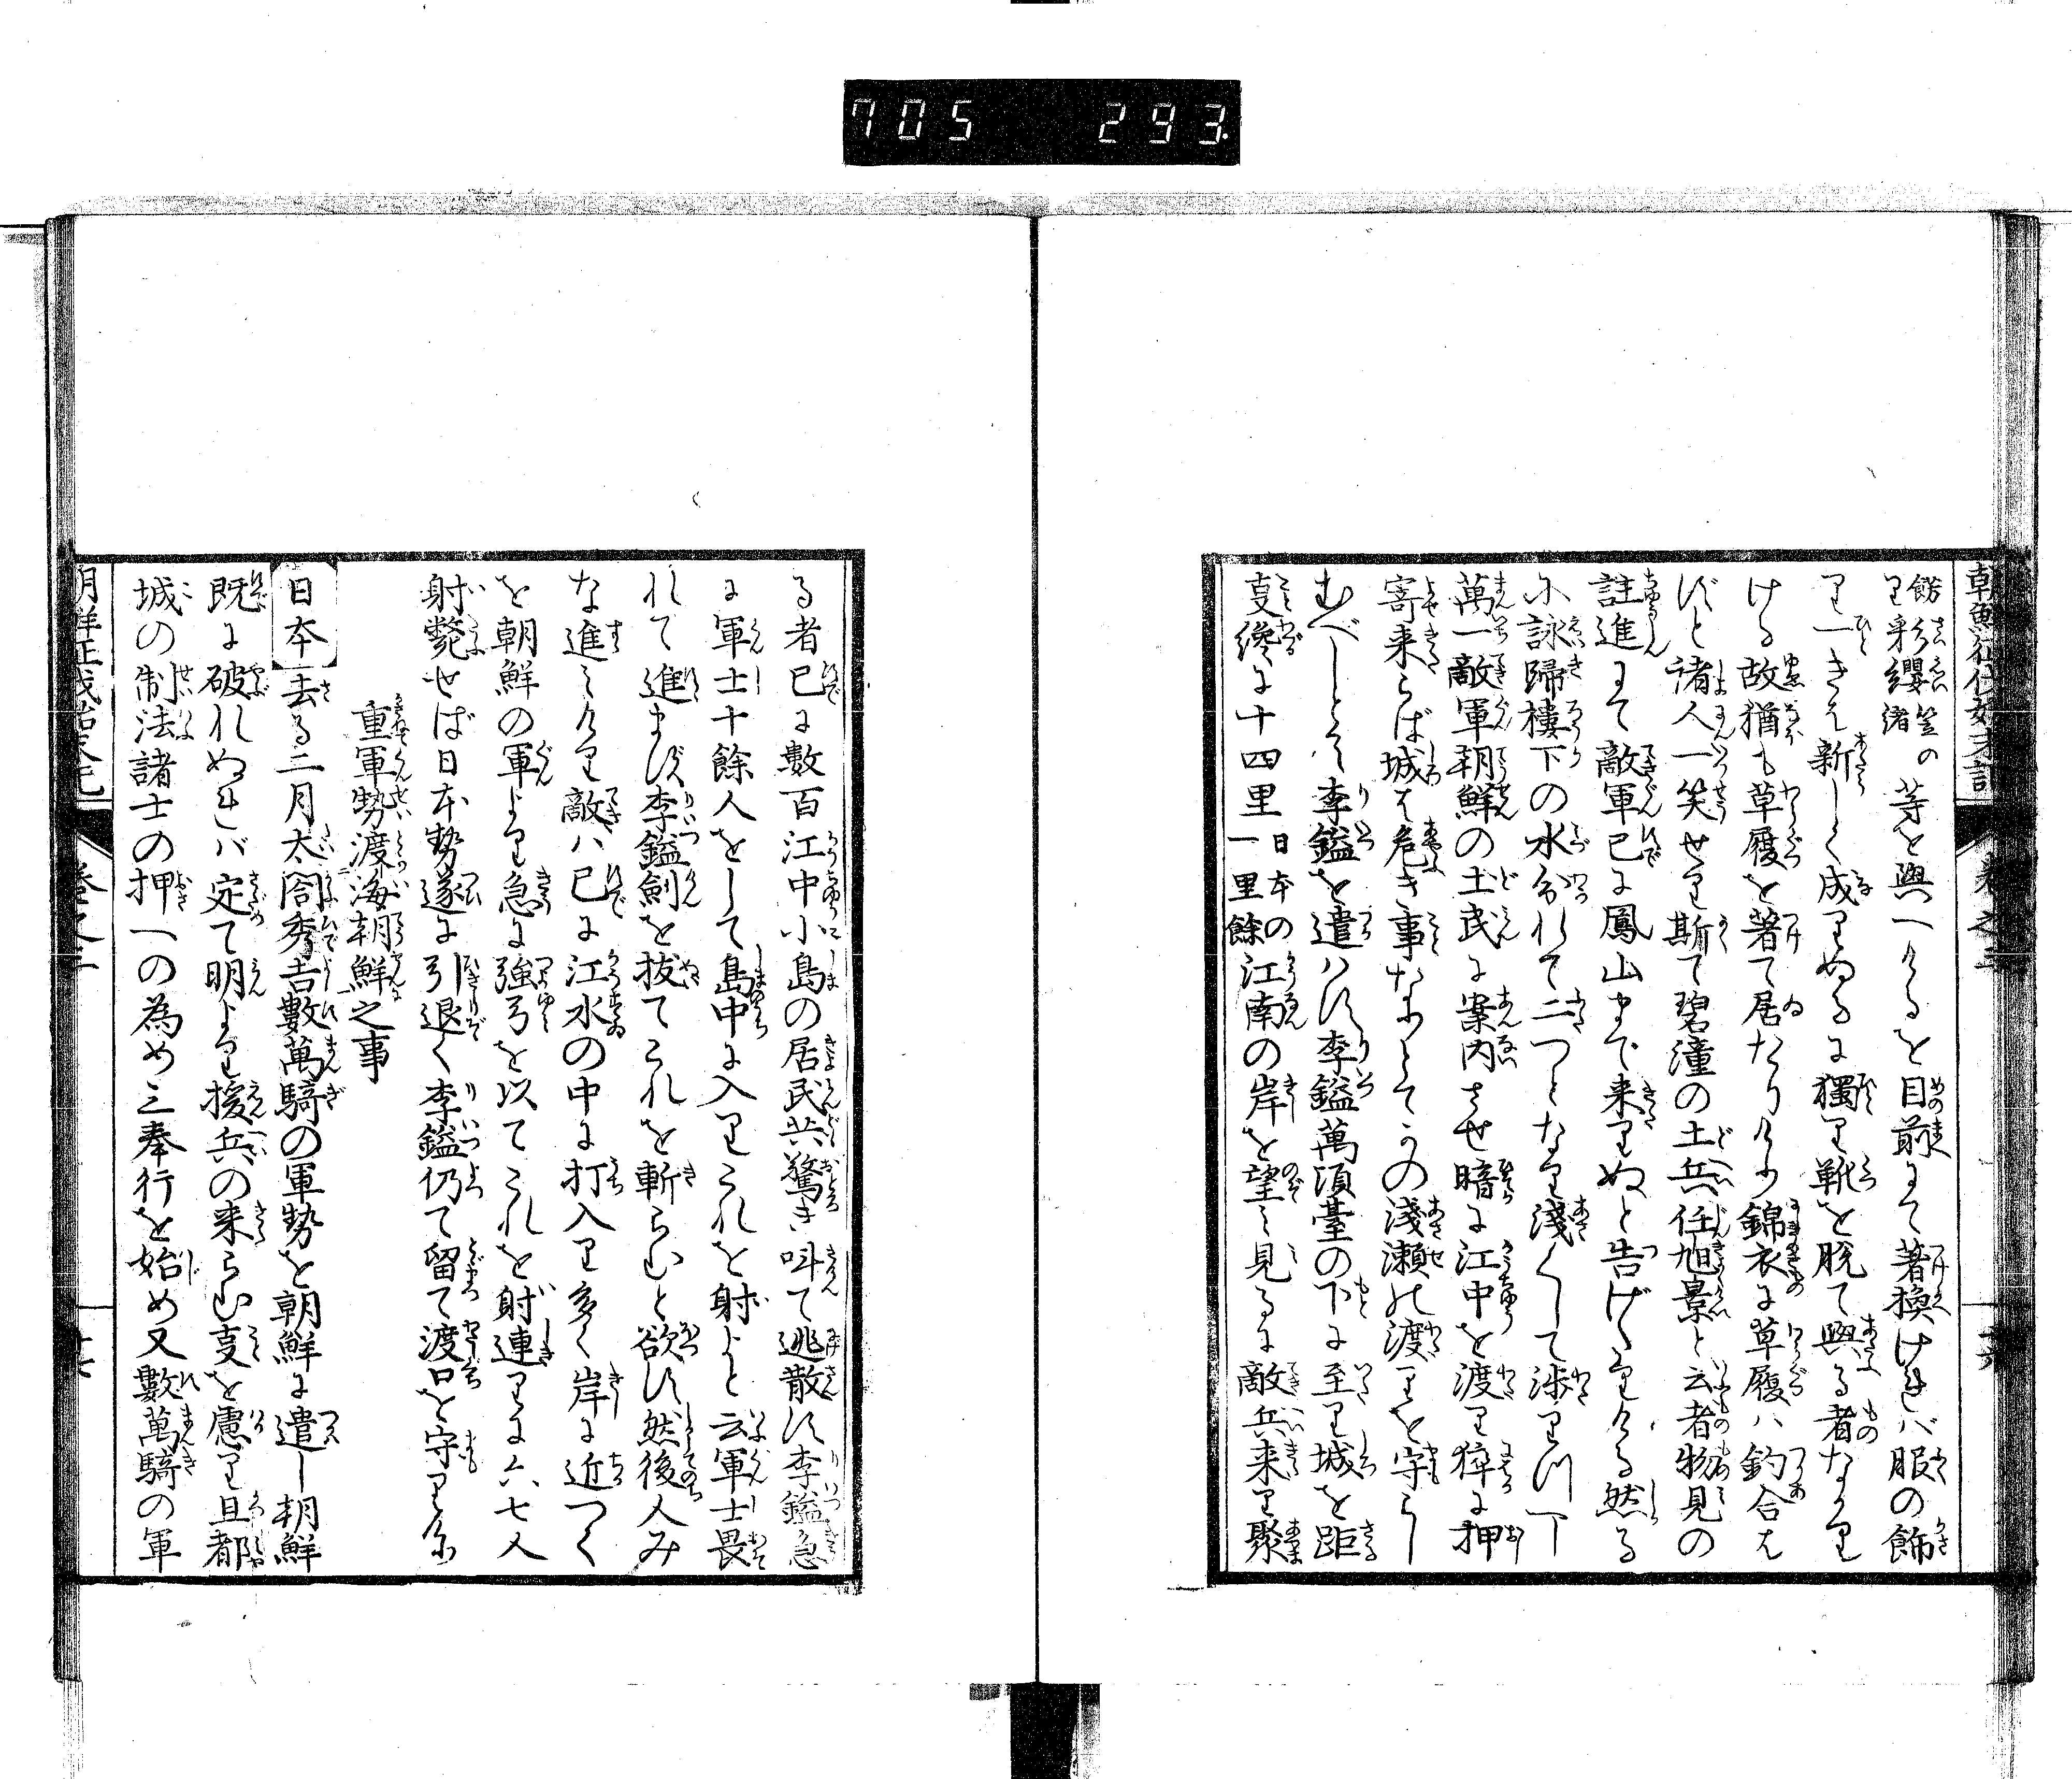 705 293
朝鮮征伐始末記 巻之二
り彩纓笠の緒等を與へけるを目前にて著換ければ服の飾
り一きは新しく成りぬるに獨り靴を脱て與る者なかり
ける故猶も草履を著て居たりけり錦衣に草履ハ釣合は
ずと諸人一笑せり斯て碧潼の土兵任旭景と云者物見の
註進にて敵軍已に鳳山まで来りぬと告げゝりける然る
に詠歸樓下の水分れて二つとなり淺くして渉り川下
萬一敵軍朝鮮の土民に案内させ暗に江中を渡り猝に押
寄来らば城は危き事なりとてかの淺瀬の渡りを守らし
むべしとて李鎰を遣はす李鎰萬頃臺の下に至り城を距
る事纔に十四里日本の一里餘江南の岸を望み見るに敵兵来り聚
る者已に數百江中小島の居民共驚き叫て逃散す李鎰急
に軍士十餘人をして島中に入りこれを射よと云軍士畏
れて進まず李鎰劍を拔てこれを斬らむと欲す然後人み
な進みけり敵ハ已に江水の中に打入り多く岸に近つく
を朝鮮の軍より急に強弓を以てこれを射連りに六七人
射斃せば日本勢遂に引退く李鎰仍て留て渡口を守りける
重軍勢渡海朝鮮之事
日本 去る二月太閤秀吉數萬騎の軍勢を朝鮮に遣し朝鮮
既に破れぬれバ定て明より援兵の来らむ事を慮り且都
城の制法諸士の押への為め三奉行を始め又數萬騎の軍